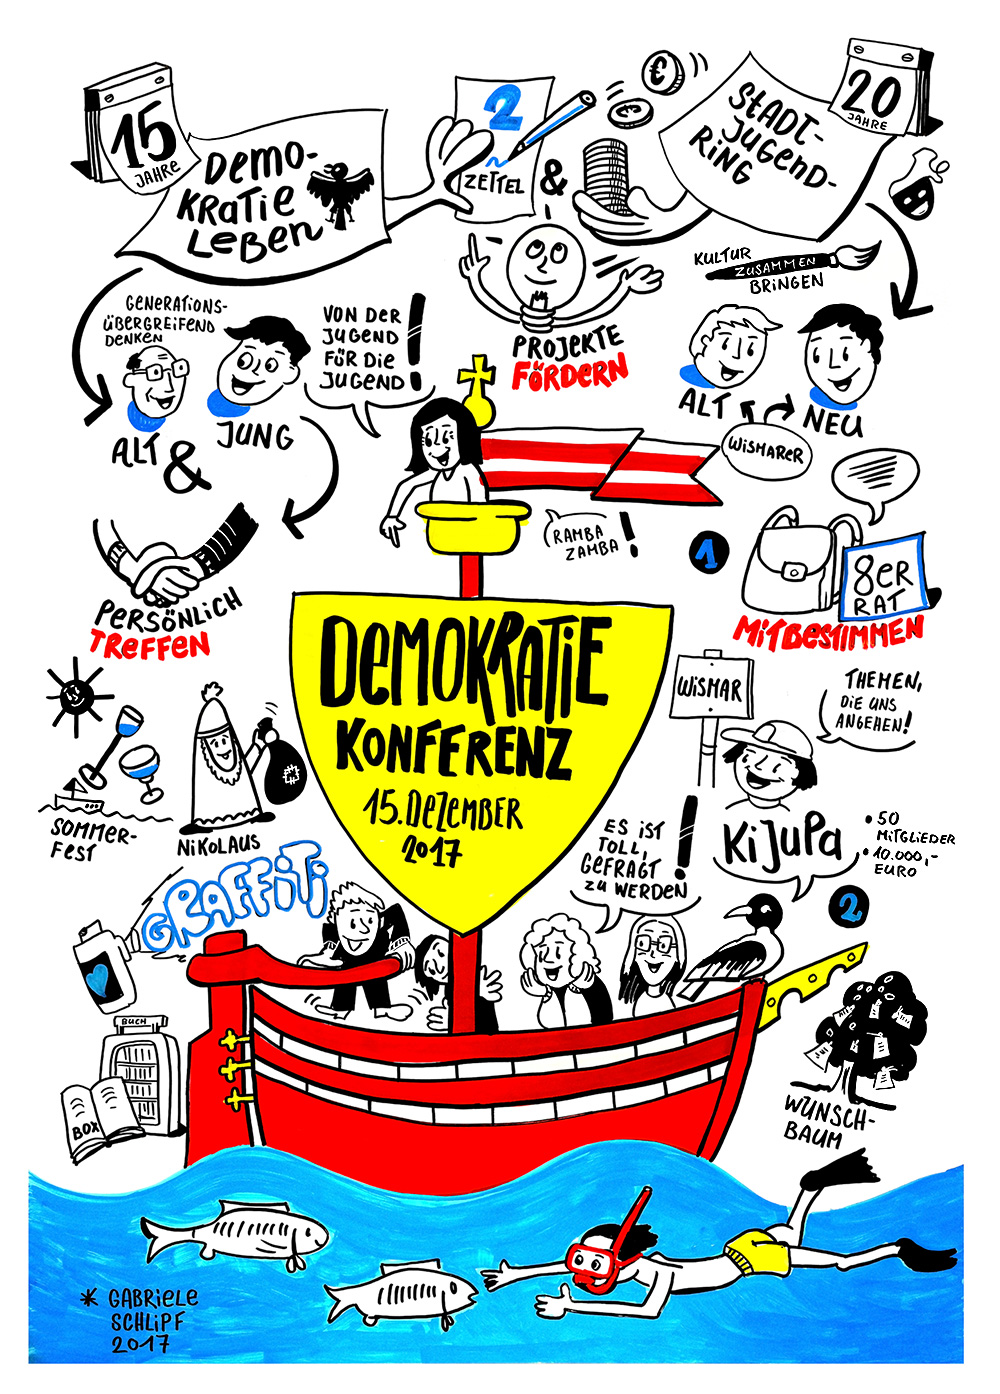 15
JAHRE
DEMO-
KRATIE
LEBEN
2
ZETTEL
&
€
€
STADT-
JUGEND-
RING
20
JAHRE
GENERATIONS-
ÜBERGREIFEND
DENKEN
ALT & JUNG
VON DER
JUGEND
FÜR DIE
JUGEND!
PROJEKTE
FÖRDERN
KULTUR
ZUSAMMEN
BRINGEN
ALT
NEU
WISMARER
PERSÖNLICH
TREFFEN
RAMBA
ZAMBA!
1
8ER
RAT
MITBESTIMMEN
DEMOKRATIE
KONFERENZ
15. DEZEMBER
2017
WISMAR
THEMEN,
DIE UNS
ANGEHEN!
SOMMER-
FEST
NIKOLAUS
GRAFFITI
ES IST
TOLL,
GEFRAGT
ZU WERDEN!
KiJuPa
• 50
MITGLIEDER
• 10.000,-
EURO
2
BUCH
BOX
WUNSCH-
BAUM
* GABRIELE
SCHLIPF
2017